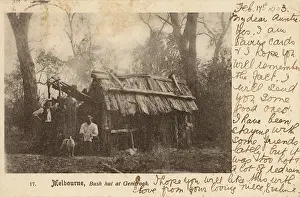 Feb. 14th 1903.
My dear Auntie
Yes. I am
saving cards
I hope
you
will remember
the fact. I
will send
you some
good
ones.
I have
been
staying with
some friends
but it
was too hot
17. Melbourne, Bush hut at
I hope you will like this with
love from your loving niece